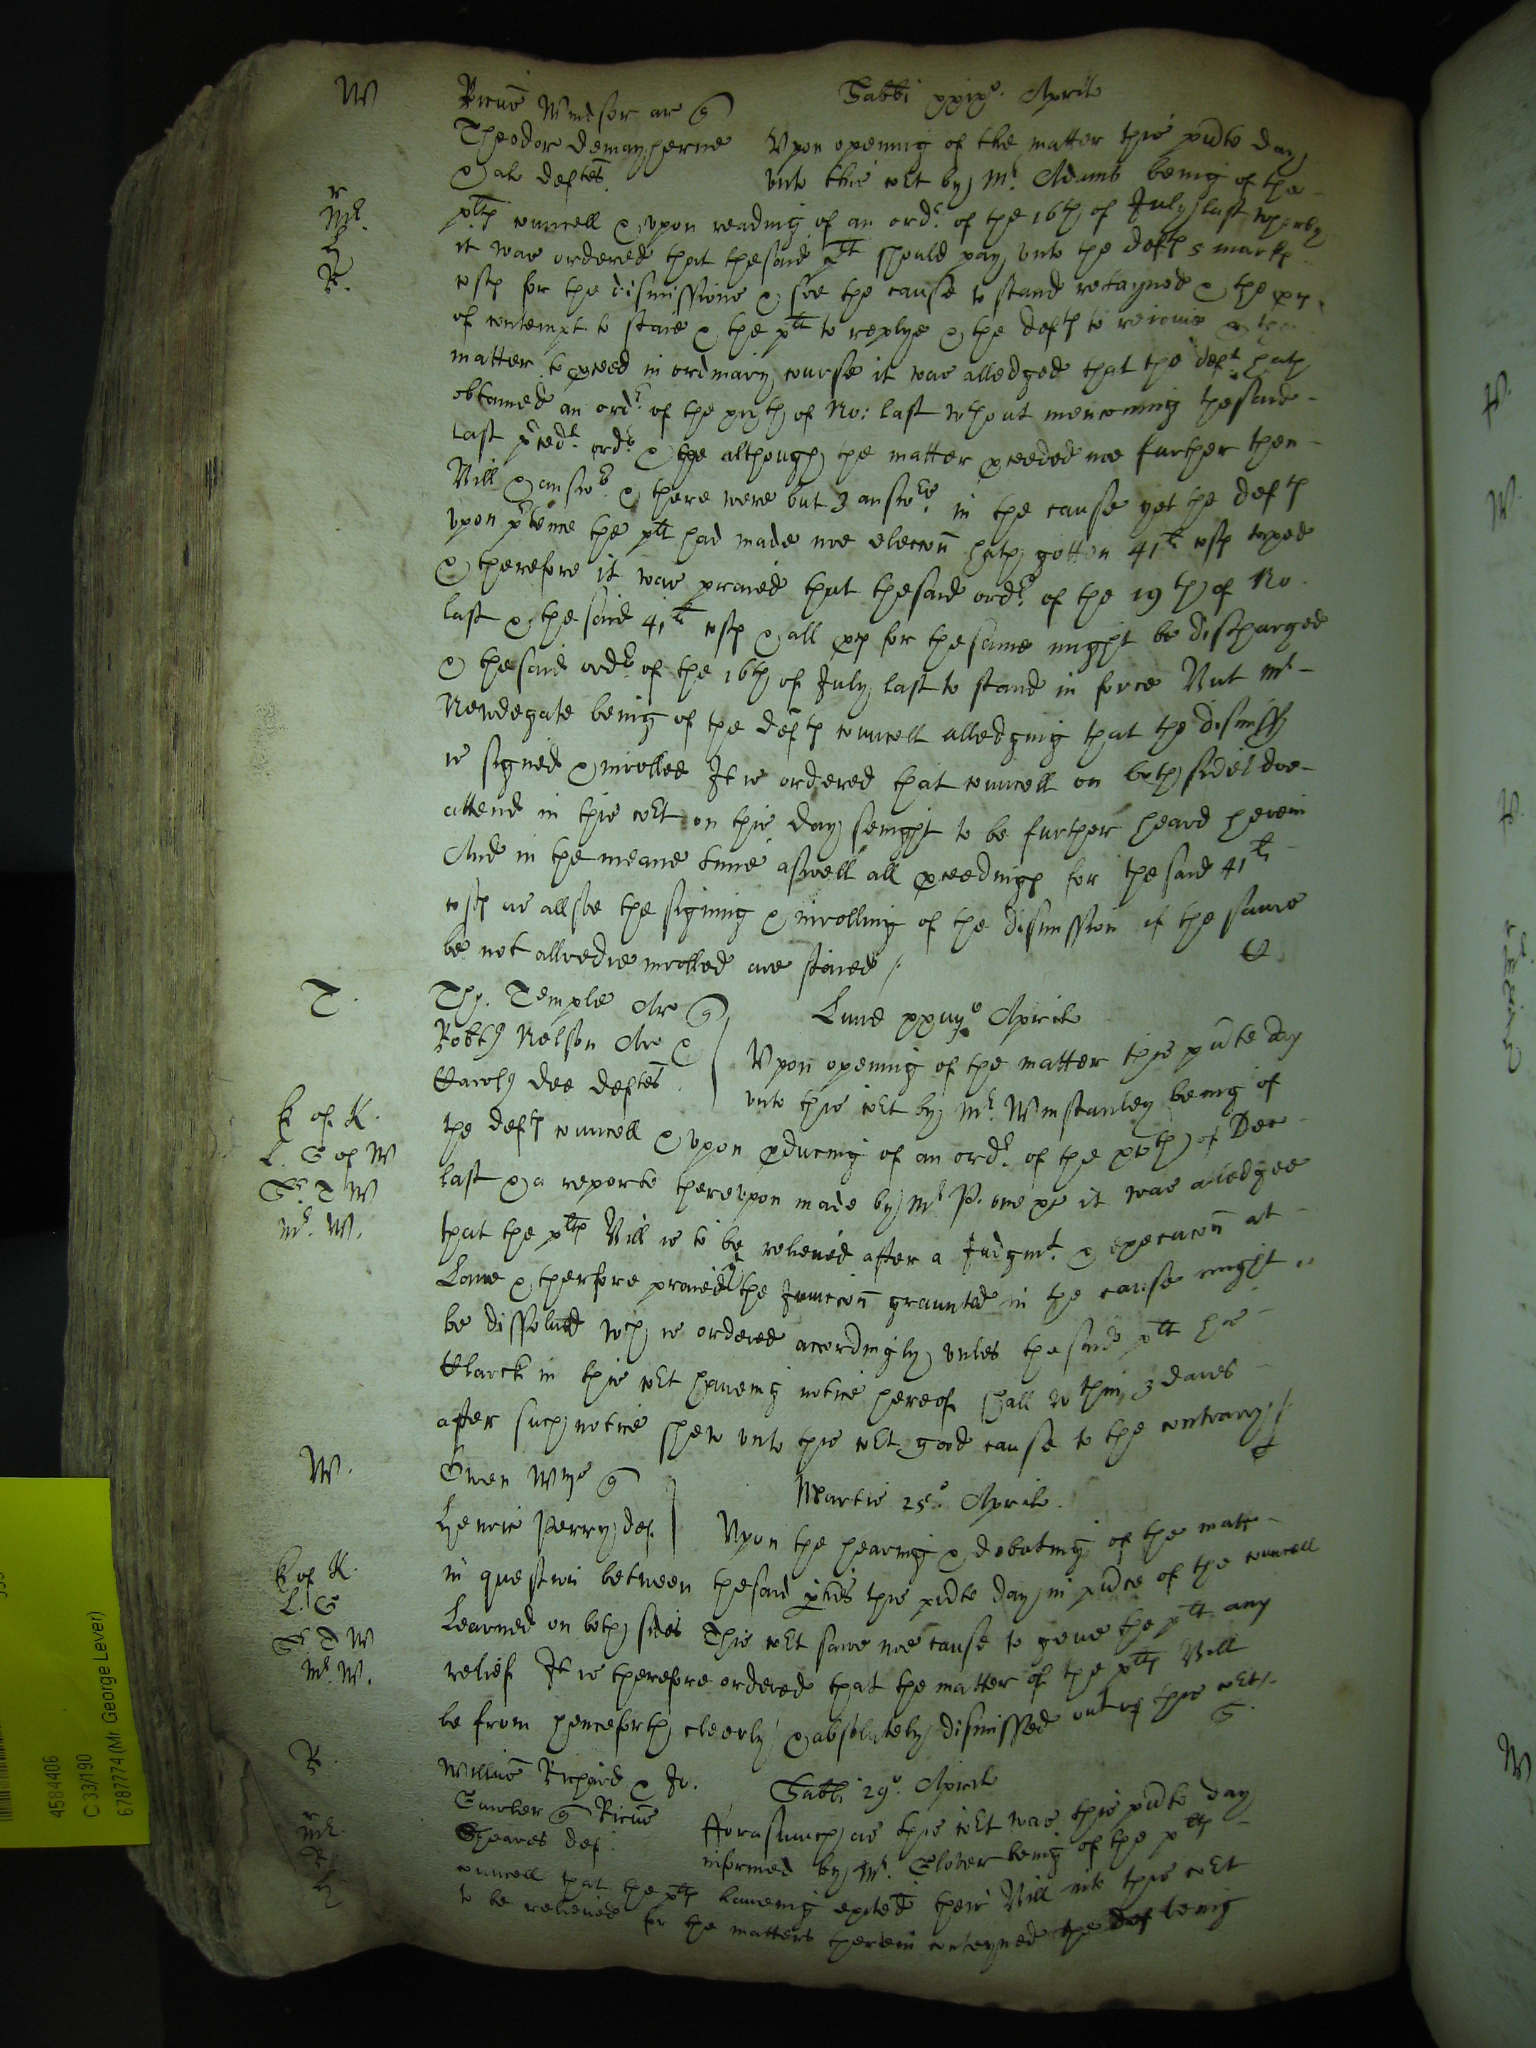 W
Ricus Windsor ar q
Sabbi xxixo. Aprilis
Theodor demayherne
& als deftes
Upon opening of the matter this pnte day
unto this cort by Mr. Adams being of the
pltfs councell & upon reading of an ordr. of the 16th of July last wherby
it was ordered that the said plt should pay unto the defts 5 marks
costs for the dismissions & soe the cause to stand retayned & the
of contempt to staie & the plt to replye & the defts to reioine &
matter to proceed in ordinary course it was alledged that the deft hath
obtained an ordr. of the of No: last wthout mencoming the said
last preedt. ordr. & the although the matter proceeded noe further then
Bill & answr. & there were but 3 answrs. in the cause yet the defts
upon pretence the plt had made noe eleccon hath gotten 41li costs taxed
& therefore it was praied that the said ordr. of the 19th of No.
last & the said 41li costs & all for the same might be discharged
& the said ordr. of the 16th of July last to stand in force But Mr
Newdegate being of the defts councell alledging that the dismiss
is signed & inrolled It is ordered that councell on both sides doe
attend in this cort on this day senight to be further heard herein
And in the meane time aswell all proceedings for the said 41li
costs as allsoe the signing & inrolling of the dismission if the same
be not allredie inrolled are staied /.
T.
Tho. Temple Ar q
Robtus Nelson Ar &
Carolus Dee deftes
Lune xxiiijo Aprilis
Upon opening of the matter this pnte day
unto this cort by Mr. Winstanley being of
L of K.
L. G of W
Sr. T W
Mr. W.
the defts councell & upon producing of an ordr. of the of Dec
last & a reporte thereupon made by Mr P. it was alledged
that the pltfs Bill is to be relieved after a Judgmt. & execucon at
Lawe & therfore praied the Iniuncon graunted in the cause might
be dissolved wch is ordered accordingly unles the said plt his
Clarck in this cort haveing notice hereof shall wthin 3 daies
after such notice shew unto this cort good cause to the contrary /.
W.
Owen Wyn q
Henric Perry def.
Martis 25o. Aprilis.
Upon the hearing & debateing of the matt
L of K.
L. G
Sr. T W
Mr. W.
in question between the said pties this pnte day in pnce of the councell
Learned on both sides This cort sawe noe cause to geve the plt any
relief It is therefore ordered that the matter of the pltfs Bill
be from henceforth cleerly & absolutely dismissed out of this cort /.
R
Willms Richard & Jo.
Sabti 29o. Aprilis
q Ricus
def.
Mr.
Forasmuch as this cort was this pnte day
informed by Mr. Glover being of the pltfs
councell that the pltfs haveing exited their Bill into this cort
to be relieved for the matters therein conteyned the def being
4584406
C 33/190
6787774 (Mr. George Lever)